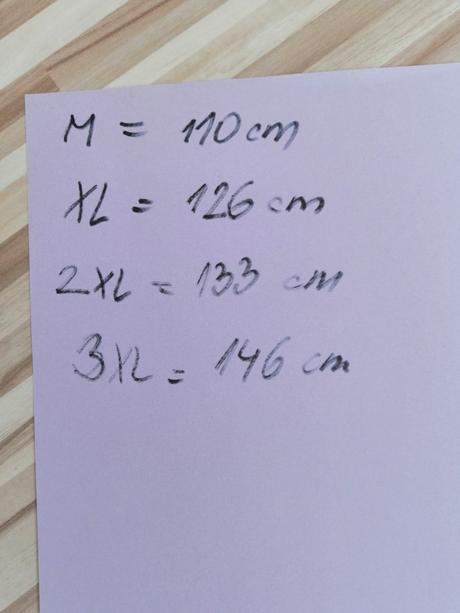 M = 110 cm
XL = 126 cm
2XL = 133 cm
3XL = 146 cm